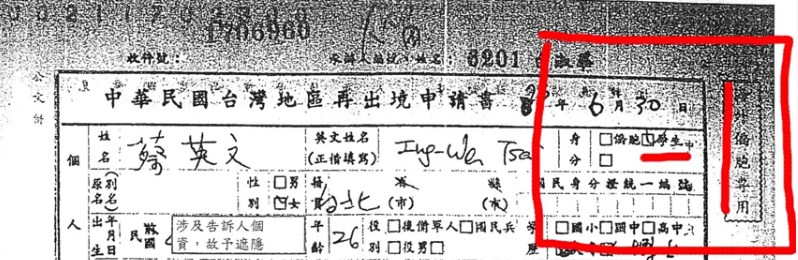 1706960
收件號：
承辦人編號、姓名：6201
中華民國台灣地區再出境申請書
年 6 月 30 日
海外僑胞專用
公文附
個人
姓名 蔡英文
英文姓名（正楷填寫） Ing-Wen Tsai
身分 □僑胞 □學生
□
原名（別名）
性別 □男 □女
籍貫 台北 省（市） 縣（市）
國民身分證統一編號
出生 年月日
民國
涉及告訴人個資，故予遮隱
年齡 26
役別 □後備軍人 □國民兵 □役男
學歷 □國小 □國中 □高中